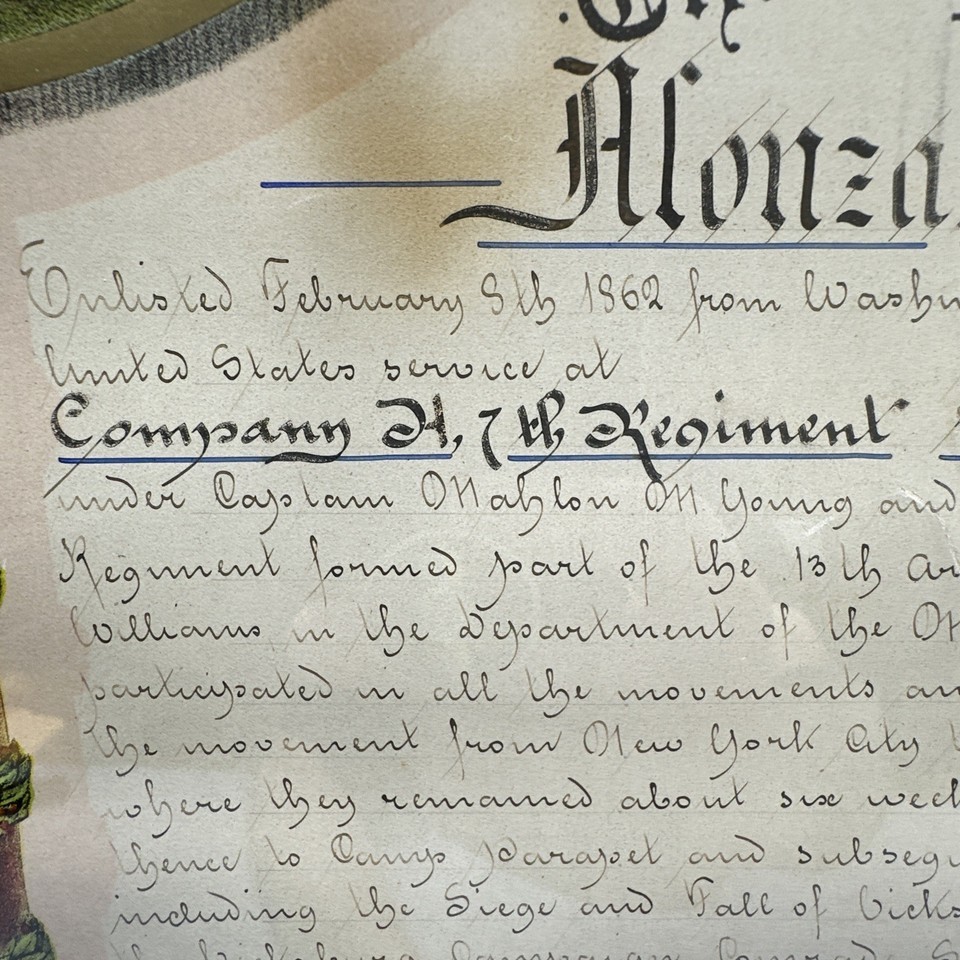 Alonza
Enlisted February 8th 1862 from Washin
United States service at
Company H, 7th Regiment
under Captain Mahlon M Young and
Regiment formed part of the 13th Ar
Williams in the Department of the M
participated in all the movements an
the movement from New York City t
where they remained about six week
thence to Camp Parapet and subsequ
including the Siege and Fall of Vicks
the Vicksburg Campaign Comrade S